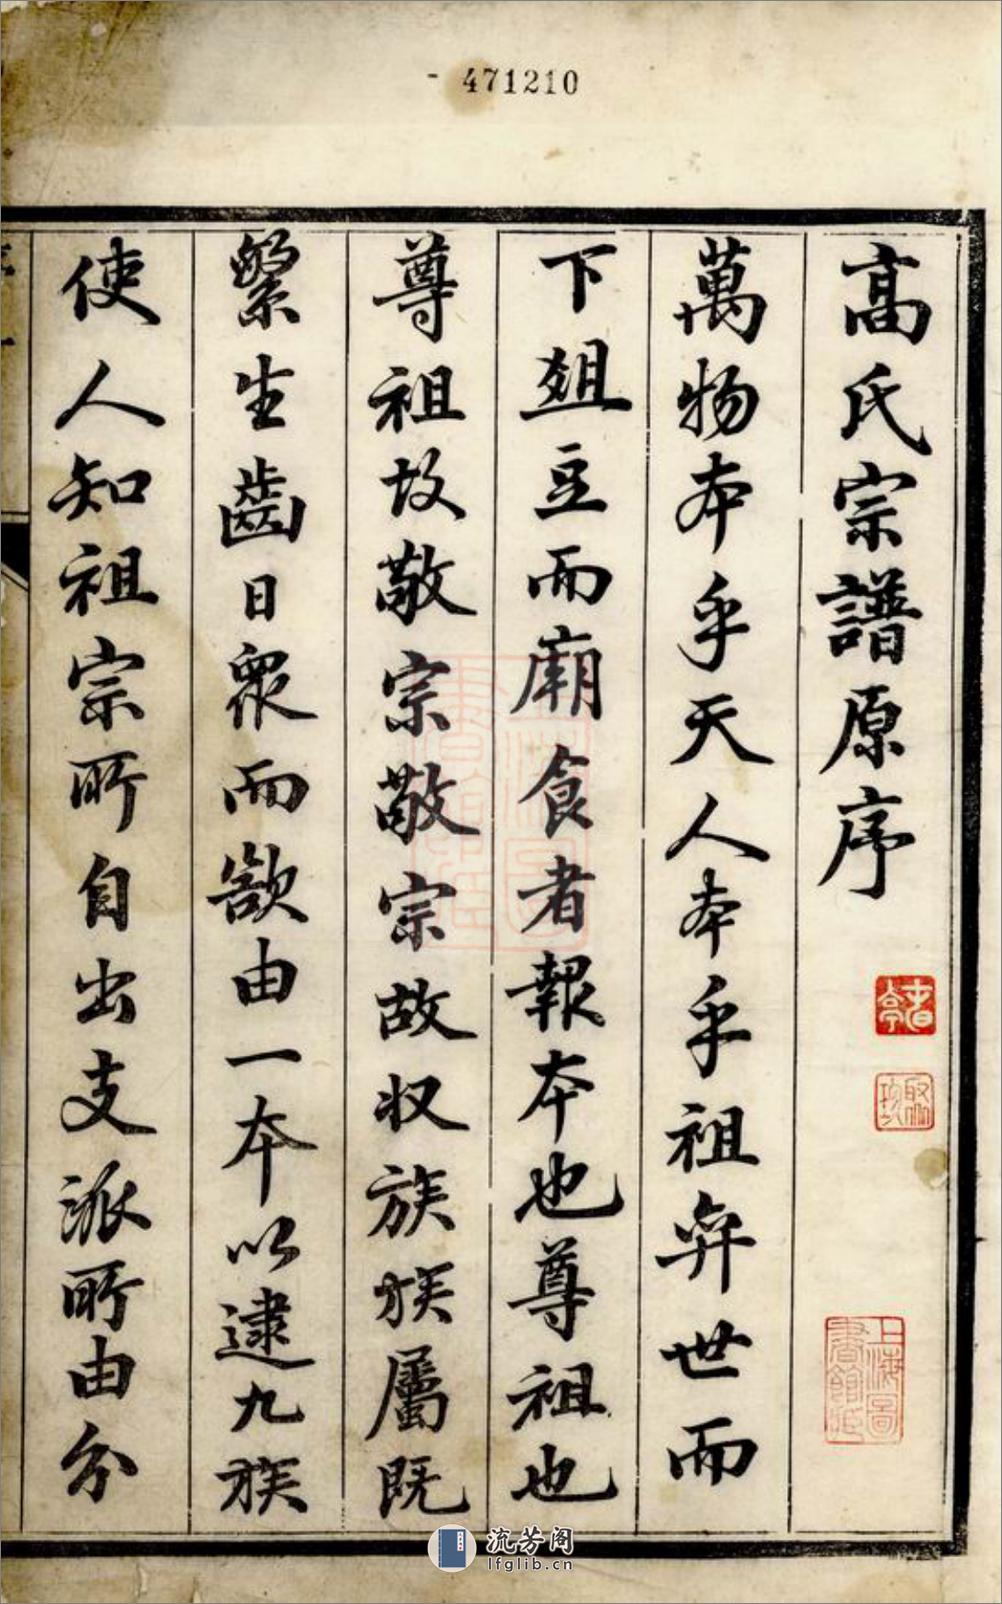 471210
高氏宗譜原序
萬物本乎天人本乎祖弃世而
下爼豆而廟食者報本也尊祖也
尊祖故敬宗敬宗故收族族屬既
繁生齒日衆而欲由一本以逮九族
使人知祖宗所自出支派所由分
上海圖
書館藏
流芳阁
lfglib.cn